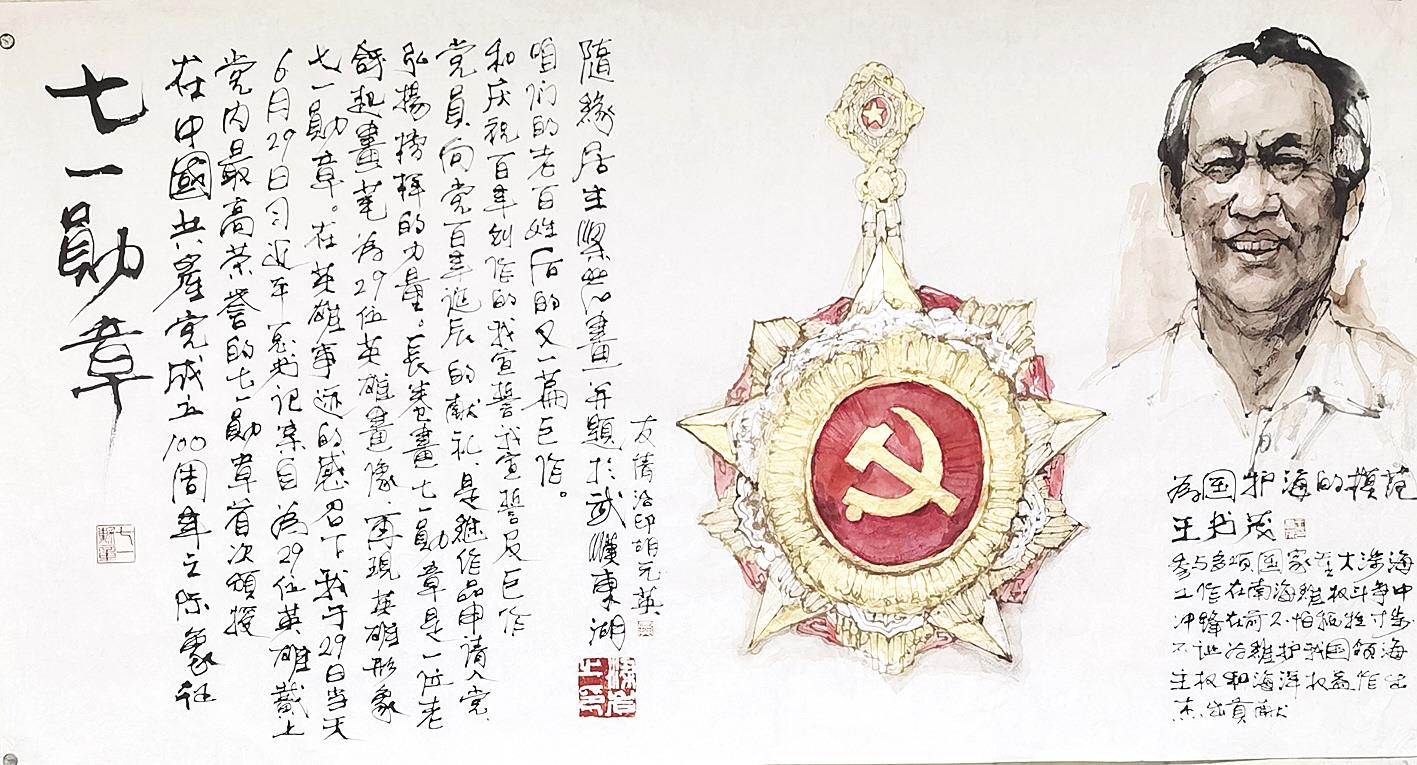 七一勛章
在中國共產党成立100周年之际象征
党内最高荣誉的七一勛章首次頒授
6月29日习近平总书记亲自为29位英雄戴上
七一勛章。在英雄事迹的感召下我于29日当天
起畫笔为29位英雄畫像、再現英雄形象
弘揚榜样的力量。長卷畫七一勛章是一位老
党員向党百年诞辰的献礼、是继作品申请入党
和庆祝百年创作的我宣誓我宣誓及巨作
咱们的老百姓后的又一篇巨作。
隨緣居生畫并題於武漢東湖
友情治印胡元英
七一勛章
为国护海的模范
王书茂
参与多项国家重大涉海
工作在南海維权斗争中
冲锋在前不怕牺牲寸步
不让为維护我国领海
主权和海洋权益作出
杰出貢献